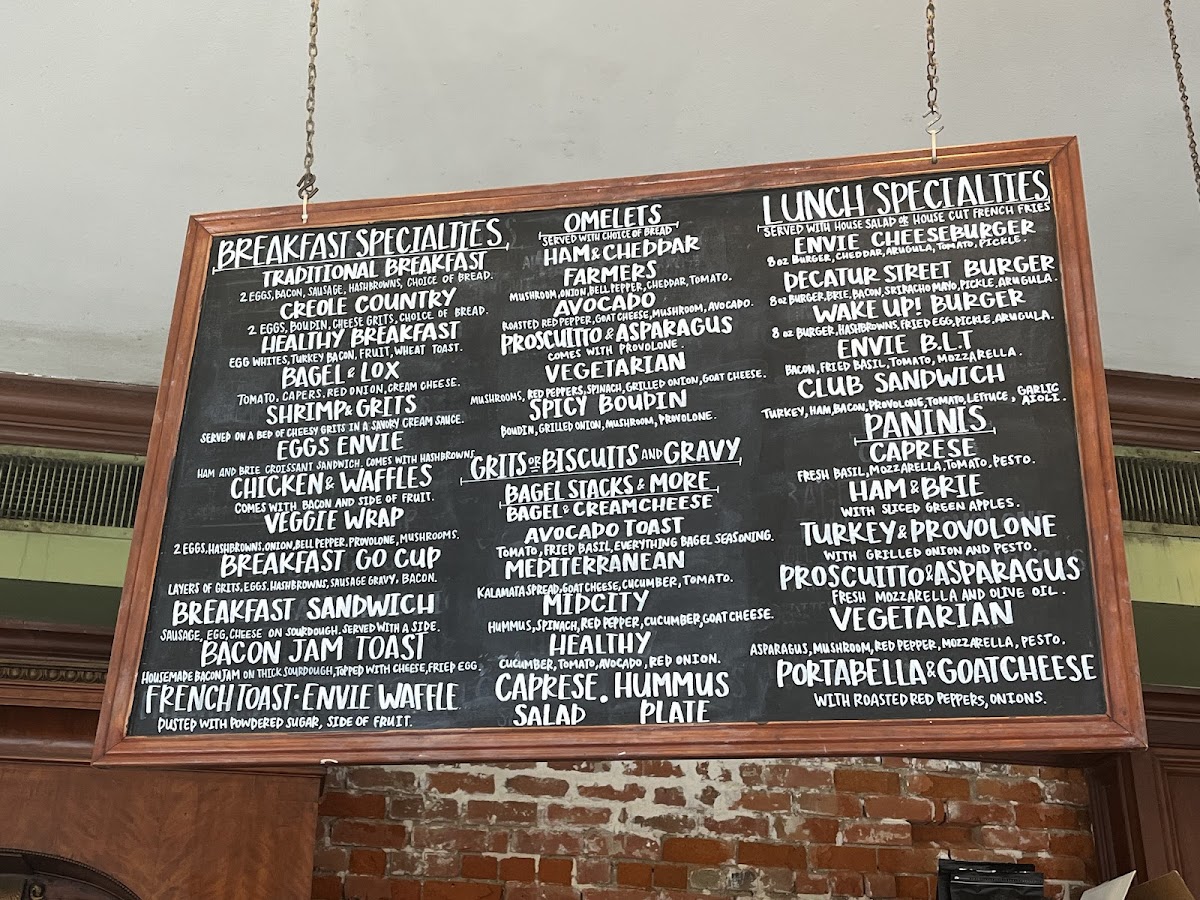 BREAKFAST SPECIALTIES
TRADITIONAL BREAKFAST
2 EGGS, BACON, SAUSAGE, HASHBROWNS, CHOICE OF BREAD.
CREOLE COUNTRY
2 EGGS, BOUDIN, CHEESE GRITS, CHOICE OF BREAD.
HEALTHY BREAKFAST
EGG WHITES, TURKEY BACON, FRUIT, WHEAT TOAST.
BAGEL & LOX
TOMATO, CAPERS, RED ONION, CREAM CHEESE.
SHRIMP & GRITS
SERVED ON A BED OF CHEESY GRITS IN A SAVORY CREAM SAUCE.
EGGS ENVIE
HAM AND BRIE CROISSANT SANDWICH. COMES WITH HASHBROWNS
CHICKEN & WAFFLES
COMES WITH BACON AND SIDE OF FRUIT.
VEGGIE WRAP
2 EGGS, HASHBROWNS, ONION, BELL PEPPER, PROVOLONE, MUSHROOMS.
BREAKFAST GO CUP
LAYERS OF GRITS, EGGS, HASHBROWNS, SAUSAGE GRAVY, BACON.
BREAKFAST SANDWICH
SAUSAGE, EGG, CHEESE ON SOURDOUGH. SERVED WITH A SIDE.
BACON JAM TOAST
HOUSEMADE BACON JAM ON THICK SOURDOUGH, TOPPED WITH CHEESE, FRIED EGG.
FRENCH TOAST · ENVIE WAFFLE
DUSTED WITH POWDERED SUGAR, SIDE OF FRUIT.
OMELETS
SERVED WITH CHOICE OF BREAD
HAM & CHEDDAR
FARMERS
MUSHROOM, ONION, BELL PEPPER, CHEDDAR, TOMATO.
AVOCADO
ROASTED RED PEPPER, GOAT CHEESE, MUSHROOM, AVOCADO.
PROSCUITTO & ASPARAGUS
COMES WITH PROVOLONE.
VEGETARIAN
MUSHROOMS, RED PEPPERS, SPINACH, GRILLED ONION, GOAT CHEESE.
SPICY BOUDIN
BOUDIN, GRILLED ONION, MUSHROOM, PROVOLONE.
GRITS OR BISCUITS AND GRAVY
BAGEL STACKS & MORE
BAGEL & CREAMCHEESE
AVOCADO TOAST
TOMATO, FRIED BASIL, EVERYTHING BAGEL SEASONING.
MEDITERRANEAN
KALAMATA SPREAD, GOAT CHEESE, CUCUMBER, TOMATO.
MIDCITY
HUMMUS, SPINACH, RED PEPPER, CUCUMBER, GOAT CHEESE.
HEALTHY
CUCUMBER, TOMATO, AVOCADO, RED ONION.
CAPRESE · HUMMUS
SALAD PLATE
LUNCH SPECIALTIES
SERVED WITH HOUSE SALAD OR HOUSE CUT FRENCH FRIES
ENVIE CHEESEBURGER
8 OZ BURGER, CHEDDAR, ARUGULA, TOMATO, PICKLE.
DECATUR STREET BURGER
8 OZ BURGER, BRIE, BACON, SRIRACHO MAYO, PICKLE, ARUGULA.
WAKE UP! BURGER
8 OZ BURGER, HASHBROWNS, FRIED EGG, PICKLE, ARUGULA.
ENVIE B.L.T
BACON, FRIED BASIL, TOMATO, MOZZARELLA.
CLUB SANDWICH
TURKEY, HAM, BACON, PROVOLONE, TOMATO, LETTUCE, GARLIC AIOLI.
PANINIS
CAPRESE
FRESH BASIL, MOZZARELLA, TOMATO, PESTO.
HAM & BRIE
WITH SLICED GREEN APPLES.
TURKEY & PROVOLONE
WITH GRILLED ONION AND PESTO.
PROSCUITTO & ASPARAGUS
FRESH MOZZARELLA AND OLIVE OIL.
VEGETARIAN
ASPARAGUS, MUSHROOM, RED PEPPER, MOZZARELLA, PESTO.
PORTABELLA & GOATCHEESE
WITH ROASTED RED PEPPERS, ONIONS.